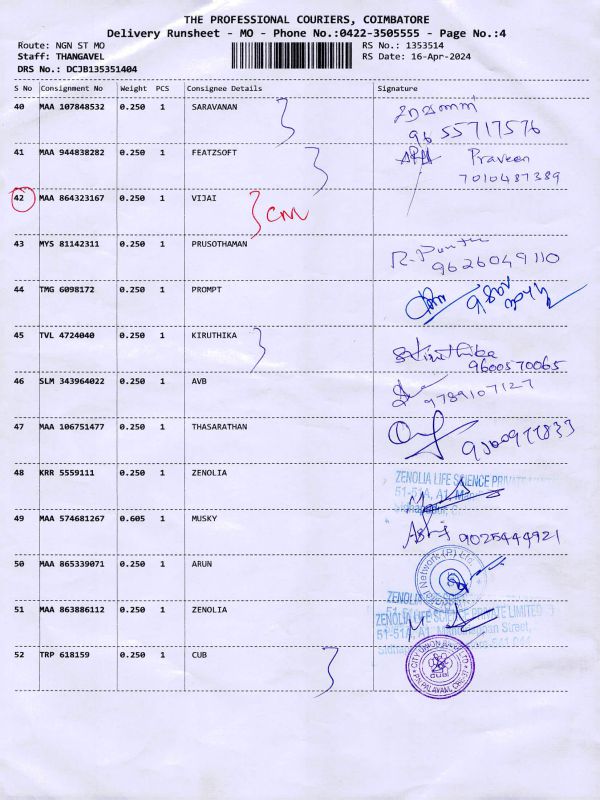 THE PROFESSIONAL COURIERS, COIMBATORE
Delivery Runsheet - MO - Phone No.:0422-3505555 - Page No.:4
Route: NGN ST MO RS No.: 1353514
Staff: THANGAVEL RS Date: 16-Apr-2024
DRS No.: DCJB135351404
S No Consignment No Weight PCS Consignee Details Signature
40 MAA 107848532 0.250 1 SARAVANAN
96 55717576
41 MAA 944838282 0.250 1 FEATZSOFT Praveen
7010487389
42 MAA 864323167 0.250 1 VIJAI
CM
43 MYS 81142311 0.250 1 PRUSOTHAMAN
9626049110
44 TMG 6098172 0.250 1 PROMPT
45 TVL 4724040 0.250 1 KIRUTHIKA Kiruthika
9600570065
46 SLM 343964022 0.250 1 AVB
9789107127
47 MAA 106751477 0.250 1 THASARATHAN
48 KRR 5559111 0.250 1 ZENOLIA ZENOLIA LIFE SCIENCE PRIVATE
51-51A, A1,
49 MAA 574681267 0.605 1 MUSKY 9025444921
50 MAA 865339071 0.250 1 ARUN Network (P) Ltd.
51 MAA 863886112 0.250 1 ZENOLIA ZENOLIA LIFE SCIENCE PRIVATE LIMITED
51-51A, A1, Street,
52 TRP 618159 0.250 1 CUB CITY UNION BANK LTD
CUB